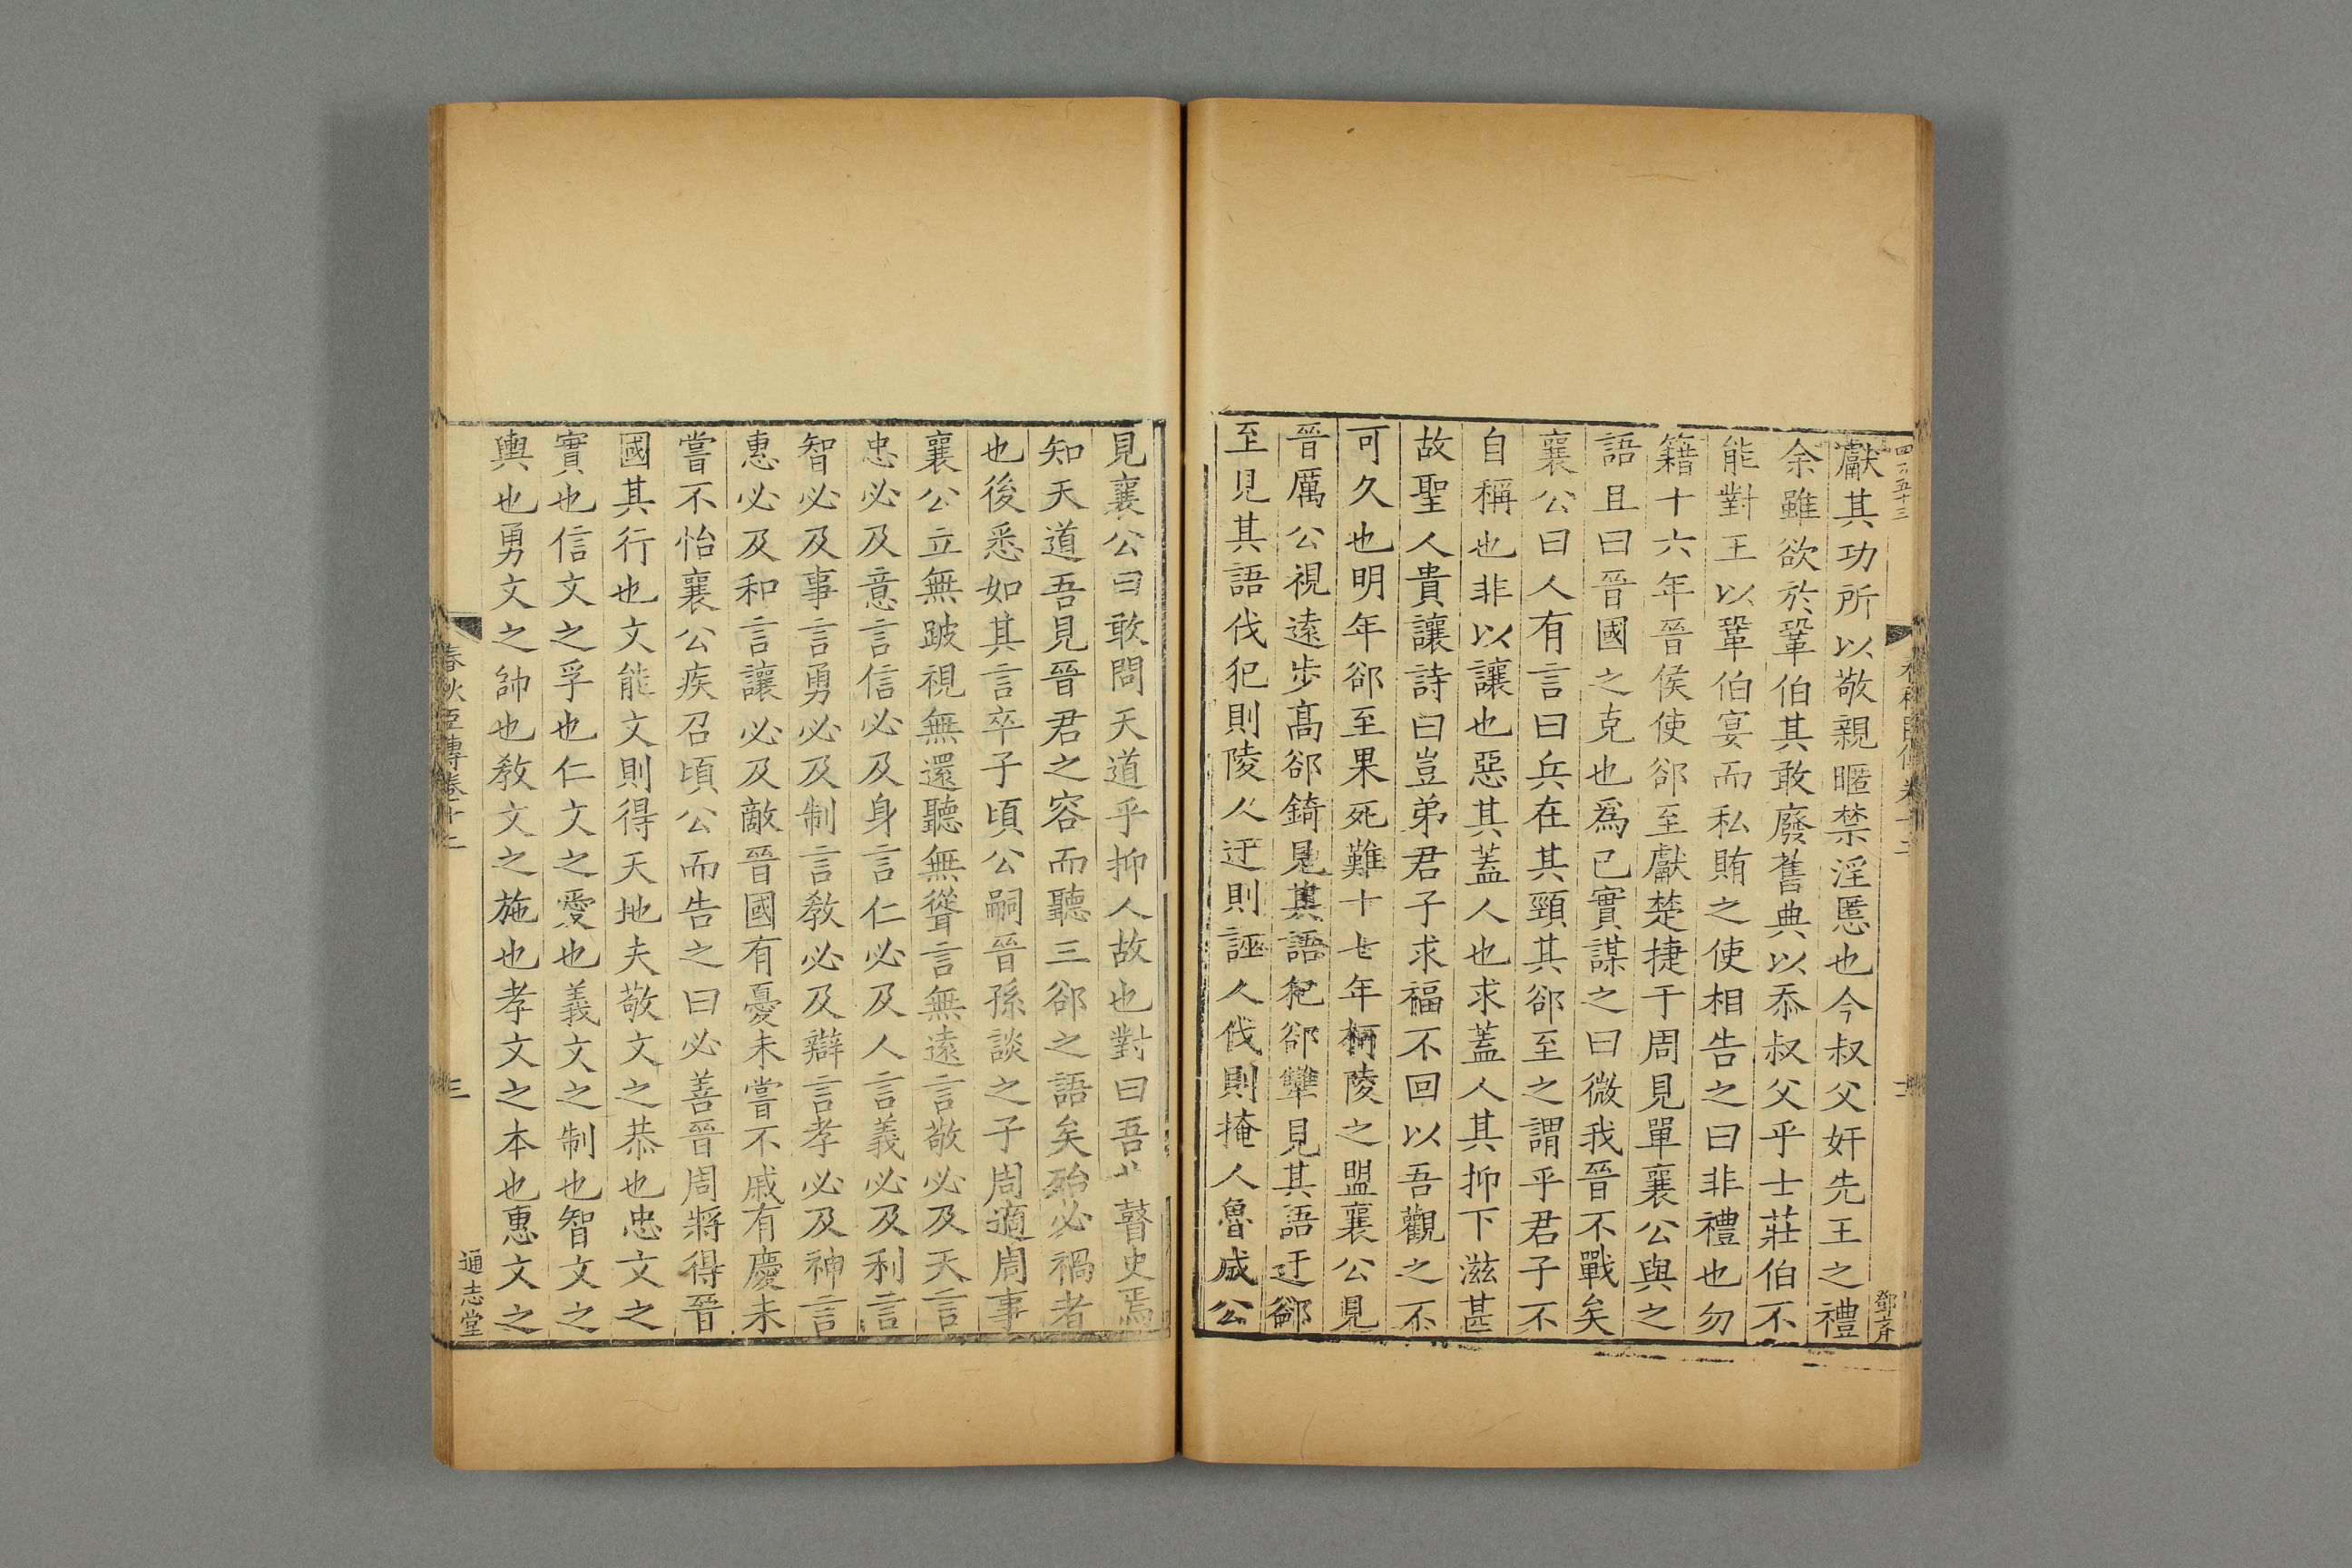 四百五十三
鄧彥
獻其功所以敬親暱禁淫慝也今叔父奸先王之禮
余雖欲於鞏伯其敢廢舊典以忝叔父乎士莊伯不
能對王以鞏伯宴而私賄之使相告之曰非禮也勿
籍十六年晉侯使郤至獻楚捷于周見單襄公與之
語且曰晉國之克也爲已實謀之曰微我晉不戰矣
襄公曰人有言曰兵在其頸其郤至之謂乎君子不
自稱也非以讓也惡其蓋人也求蓋人其抑下滋甚
故聖人貴讓詩曰豈弟君子求福不回以吾觀之不
可久也明年郤至果死難十七年柯陵之盟襄公見
晉厲公視遠步高郤錡見其語犯郤犨見其語迂郤
至見其語伐犯則陵人迂則誣人伐則掩人魯成公
見襄公曰敢問天道乎抑人故也對曰吾非瞽史焉
知天道吾見晉君之容而聽三郤之語矣殆必禍者
也後悉如其言卒子頃公嗣晉孫談之子周適周事
襄公立無跛視無還聽無聳言無遠言敬必及天言
忠必及意言信必及身言仁必及人言義必及利言
智必及事言勇必及制言教必及辯言孝必及神言
惠必及和言讓必及敵晉國有憂未嘗不戚有慶未
嘗不怡襄公疾召頃公而告之曰必善晉周將得晉
國其行也文能文則得天地夫敬文之恭也忠文之
實也信文之孚也仁文之愛也義文之制也智文之
輿也勇文之帥也教文之施也孝文之本也惠文之
春秋臣傳卷十二
三
通志堂